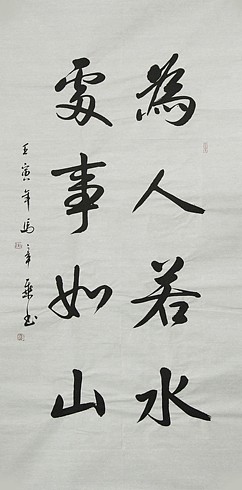 為人若水
處事如山
壬寅年馬